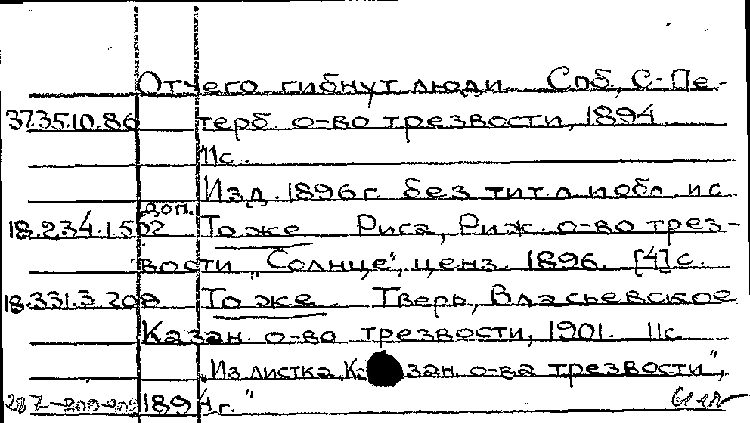 Отчего гибнут люди. Спб, С-Пе-
37.35.10.86 терб. о-во трезвости, 1894.
11с.
Изд. 1896г. без тит. л. и обл. 11с.
доп.
18.234.1.502 То же. Рига, Риж. о-во трез-
вости „Солнце“, ценз. 1896. [4]с.
18.331.3.208 То же. Тверь, Власьевское
Казан. о-во трезвости, 1901. 11с.
„Из листка Казан. о-ва трезвости“,
1894г.“